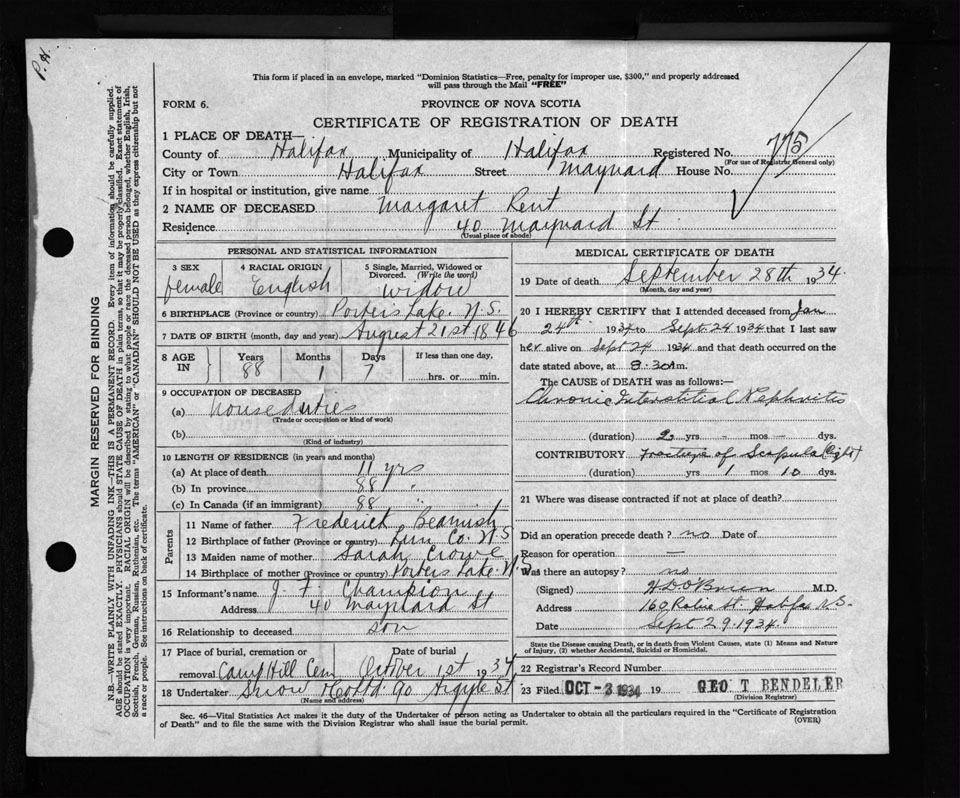 P.H.
This form if placed in an envelope, marked "Dominion Statistics—Free, penalty for improper use, $300," and properly addressed
will pass through the Mail "FREE"
FORM 6.
PROVINCE OF NOVA SCOTIA
CERTIFICATE OF REGISTRATION OF DEATH
1 PLACE OF DEATH—
County of Halifax Municipality of Halifax Registered No. 775
(For use of Registrar General only)
City or Town Halifax Street Maynard House No.
If in hospital or institution, give name
2 NAME OF DECEASED Margaret Rent
Residence 40 Maynard St
(Usual place of abode)
PERSONAL AND STATISTICAL INFORMATION
3 SEX
female
4 RACIAL ORIGIN
English
5 Single, Married, Widowed or
Divorced. (Write the word)
widow
6 BIRTHPLACE (Province or country) Porters Lake N.S.
7 DATE OF BIRTH (month, day and year) August 21st 1846
8 AGE IN
Years 88
Months 1
Days 7
If less than one day,
hrs. or min.
9 OCCUPATION OF DECEASED
(a) house duties
(Trade or occupation or kind of work)
(b)
(Kind of industry)
10 LENGTH OF RESIDENCE (in years and months)
(a) At place of death 11 yrs
(b) In province 88 "
(c) In Canada (if an immigrant) 88 "
Parents
11 Name of father Frederick Beamish
12 Birthplace of father (Province or country) Lun Co. N.S
13 Maiden name of mother Sarah Crowe
14 Birthplace of mother (Province or country) Porters Lake N.S
15 Informant's name J. F. Champion
Address 40 Maynard St
16 Relationship to deceased son
17 Place of burial, cremation or
removal Camp Hill Cem
Date of burial
October 1st 1934
18 Undertaker Snow & Co Ltd 90 Argyle St
(Name and address)
MEDICAL CERTIFICATE OF DEATH
19 Date of death September 28th 1934.
(Month, day and year)
20 I HEREBY CERTIFY that I attended deceased from Jan
24th 1934 to Sept 24 1934 that I last saw
her alive on Sept 24 1934 and that death occurred on the
date stated above, at 8.30 m.
The CAUSE OF DEATH was as follows:—
Chronic Interstitial Nephritis
(duration) 2 yrs - mos - dys.
CONTRIBUTORY Fracture of Scapula (Right)
(duration) yrs 1 mos 10 dys.
21 Where was disease contracted if not at place of death?
Did an operation precede death? no Date of
Reason for operation —
Was there an autopsy? no
(Signed) H D O'Brien M.D.
Address 160 Robie St. Halifax N.S.
Date Sept 29. 1934.
State the Disease causing Death, or in death from Violent Causes, state (1) Means and Nature
of Injury, (2) whether Accidental, Suicidal or Homicidal.
22 Registrar's Record Number
23 Filed OCT -3 1934 19 GEO T BENDELER
(Division Registrar)
Sec. 46—Vital Statistics Act makes it the duty of the Undertaker or person acting as Undertaker to obtain all the particulars required in the "Certificate of Registration
of Death" and to file the same with the Division Registrar who shall issue the burial permit.
(OVER)
MARGIN RESERVED FOR BINDING
N.B.—WRITE PLAINLY WITH UNFADING INK—THIS IS A PERMANENT RECORD. Every item of information should be carefully supplied.
AGE should be stated EXACTLY. PHYSICIANS should STATE CAUSE OF DEATH in plain terms, so that it may be properly classified. Exact statement of
OCCUPATION is very important. RACIAL ORIGIN will be described by stating to what people or race the deceased person belonged, whether English, Irish,
Scottish, French, German, Russian, Ruthenian, etc. The terms "AMERICAN" or "CANADIAN" SHOULD NOT BE USED as they express citizenship but not
a race or people. See instructions on back of certificate.